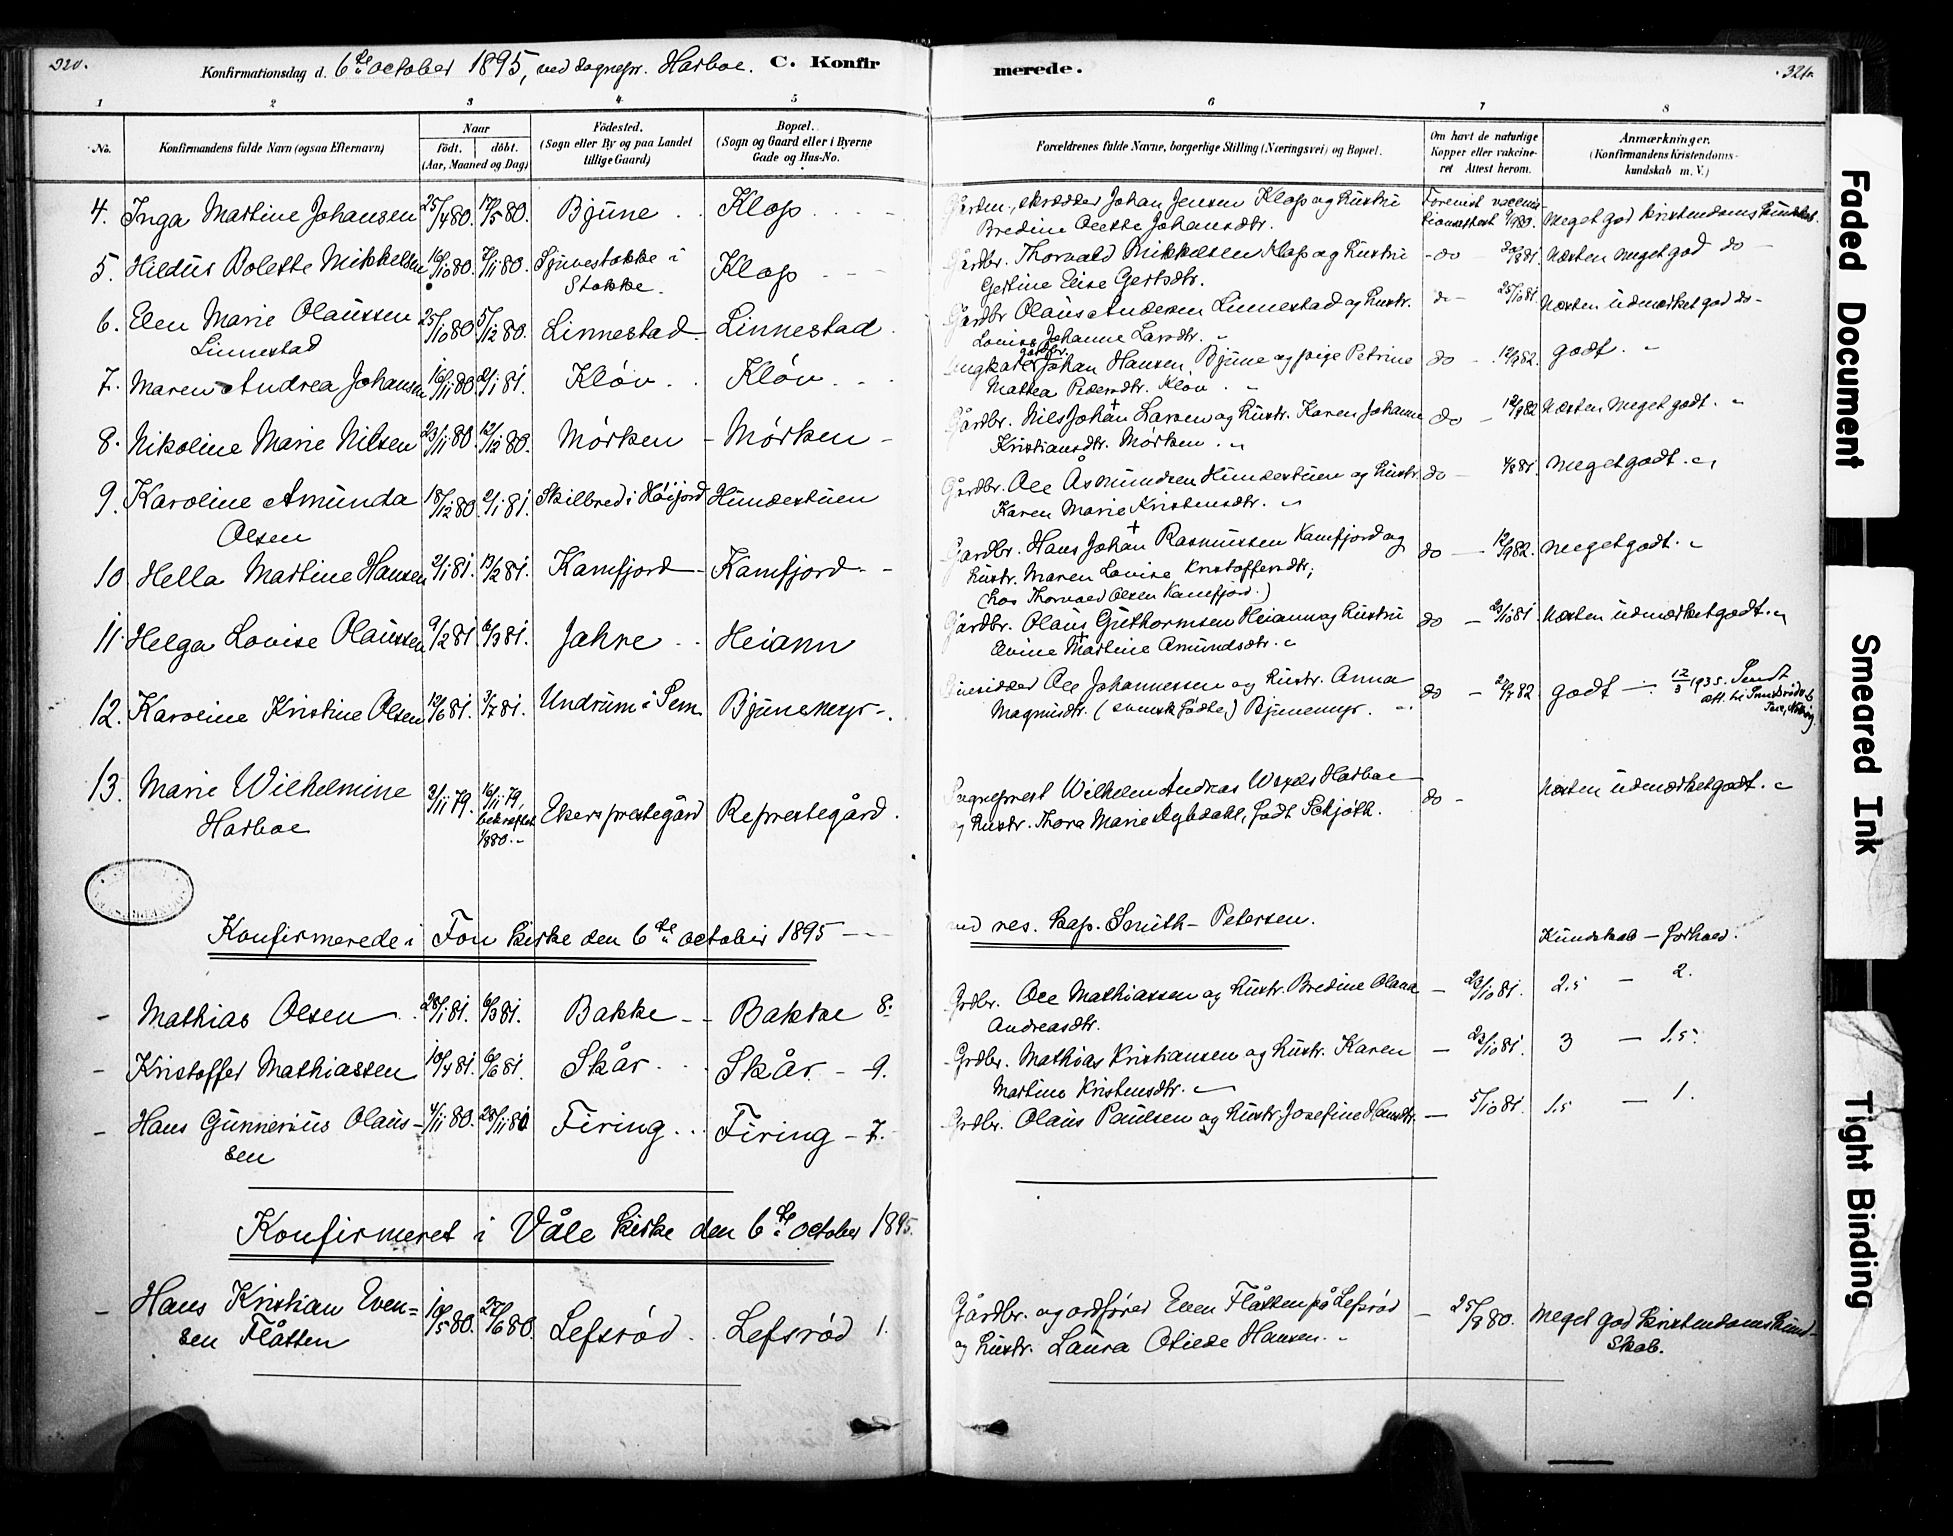 320.
Konfirmationsdag d. 6te october 1895, ved sognepr. Harboe. C. Konfir
merede.
321.
1 2 3 4 5
6 7 8
No.
Konfirmandens fulde Navn (ogsaa Efternavn)
Naar
födt. döbt.
(Aar, Maaned og Dag)
Födested.
(Sogn eller By og paa Landet
tillige Gaard)
Bopæl.
(Sogn og Gaard eller i Byerne
Gade og Hus-No.
Forældrenes fulde Navne, borgerlige Stilling (Næringsvei) og Bopæl.
Om havt de naturlige
Kopper eller vakcine-
ret Attest herom.
Anmærkninger.
(Konfirmandens Kristendoms-
kundskab m. V.)
4. Inga Martine Johansen 25/4 80. 17/5 80. Bjune Klop
skrædder Johan Jensen Klop og hustru
Bredine Olette Johansdtr.
Forevist vaccina-
tionsattest
Meget god Kristendomskundskab.
5. Hildus Bolette Mikkelsen 16/10 80. 7/11 80. i
Stokke. Klop
Gårdbr. Thorvald Mikkelsen Klop og hustru
Gertine Elise Gertsdtr.
do Næsten meget god do
6. Elen Marie Olaussen
Linnestad
25/10 80 5/12 80. Linnestad Linnestad
Gårdbr. Olaus Andersen Linnestad og hustr.
Lovise Johanne Larsdtr. "
do 25/10 81. Næsten udmærket god do
7. Maren Andrea Johansen 16/11 80. 2/1 81. Kløv Kløv
Ungkarl gårdbr. Johan Hansen Bjune og pige Petrine
Mathea Pedersdtr. Kløv. "
do 12/9 82. godt. "
8. Nikoline Marie Nilsen 23/11 80 12/12 80. Mørken Mørken
Gårdbr. Nils Johan Larsen og hustr. Karen Johanne
Kristiansdtr. Mørken. "
do 12/9 82 Næsten meget godt. "
9. Karoline Amunda
Olsen
18/12 80 2/1 81. Skilbred i Höijord Hundestuen
Gårdbr. Ole Åsmundsen Hundestuen og hustr.
Karen Marie Kristensdtr. "
do meget godt. "
10. Hella Martine Hansen 2/1 81. 13/2 81. Kamfjord Kamfjord
Gårdbr. Hans Johan Rasmussen Kamfjord og
hustr. Maren Lovise Kristoffersdtr;
(hos Thorvald Olsen Kamfjord.)
do 12/9 82. meget godt. "
11. Helga Lovise Olaussen 9/2 81. 6/3 81. Jahre Heiann
Gårdbr. Olaus Guthormsen Heiann og hustru
Martine Amundsdtr. "
do 23/10 81. Næsten udmærket godt. "
12. Karoline Kristine Olsen 12/6 81. 3/7 81. Undrum i Sem Bjunemyr
Ole Johannessen og hustr. Anna
Magnusdtr. (svensk födte) Bjunemyr. "
do godt 12/3 1935. Sendt
att. til
13. Marie Wilhelmine
Harboe
3/11 79. 16/11 79,
bekræftet
1/8 80. "
Ekers prestegård Re prestegård.
Sogneprest Wilhelm Andreas Wexels Harboe
og hustr. Thora Marie Dybdahl, født Schjøth.
do Næsten udmærket godt. "
Konfirmerede i Fon kirke den 6te october 1895
ved res. kap. Smith-Petersen.
Kundskab – forhold.
– Mathias Olsen 28/1 81. 6/3 81. Bakke Bakke 8.
Grdbr. Ole Mathiassen og hustr. Bredine Olava
Andreasdtr.
23/10 81. 2.5 – 2.
– Kristoffer Mathiassen 10/4 81. 6/6 81. Skår Skår – 9.
Grdbr. Mathias Kristiansen og hustr. Karen
Martine Kristensdtr. "
23/10 81. 3 – 1.5.
– Hans Gunnerius Olaus-
sen
4/11 80. 28/11 80 Firing Firing – 7.
Grdbr. Olaus Paulsen og hustr. Josefine Hansdtr.
5/10 81. 1.5 – 1.
Konfirmeret i Våle kirke den 6te october 1895.
– Hans Kristian Even=
sen Flåtten
10/5 80. 27/6 80. Lefsrød Lefsrød 1.
Gårdbr. og ordfører Even Flåtten på Lefsrød
og hustr. Laura Otilde Hansen. "
25/9 80. Meget god Kristendomskund-
skab.
Faded Document
Smeared Ink
Tight Binding